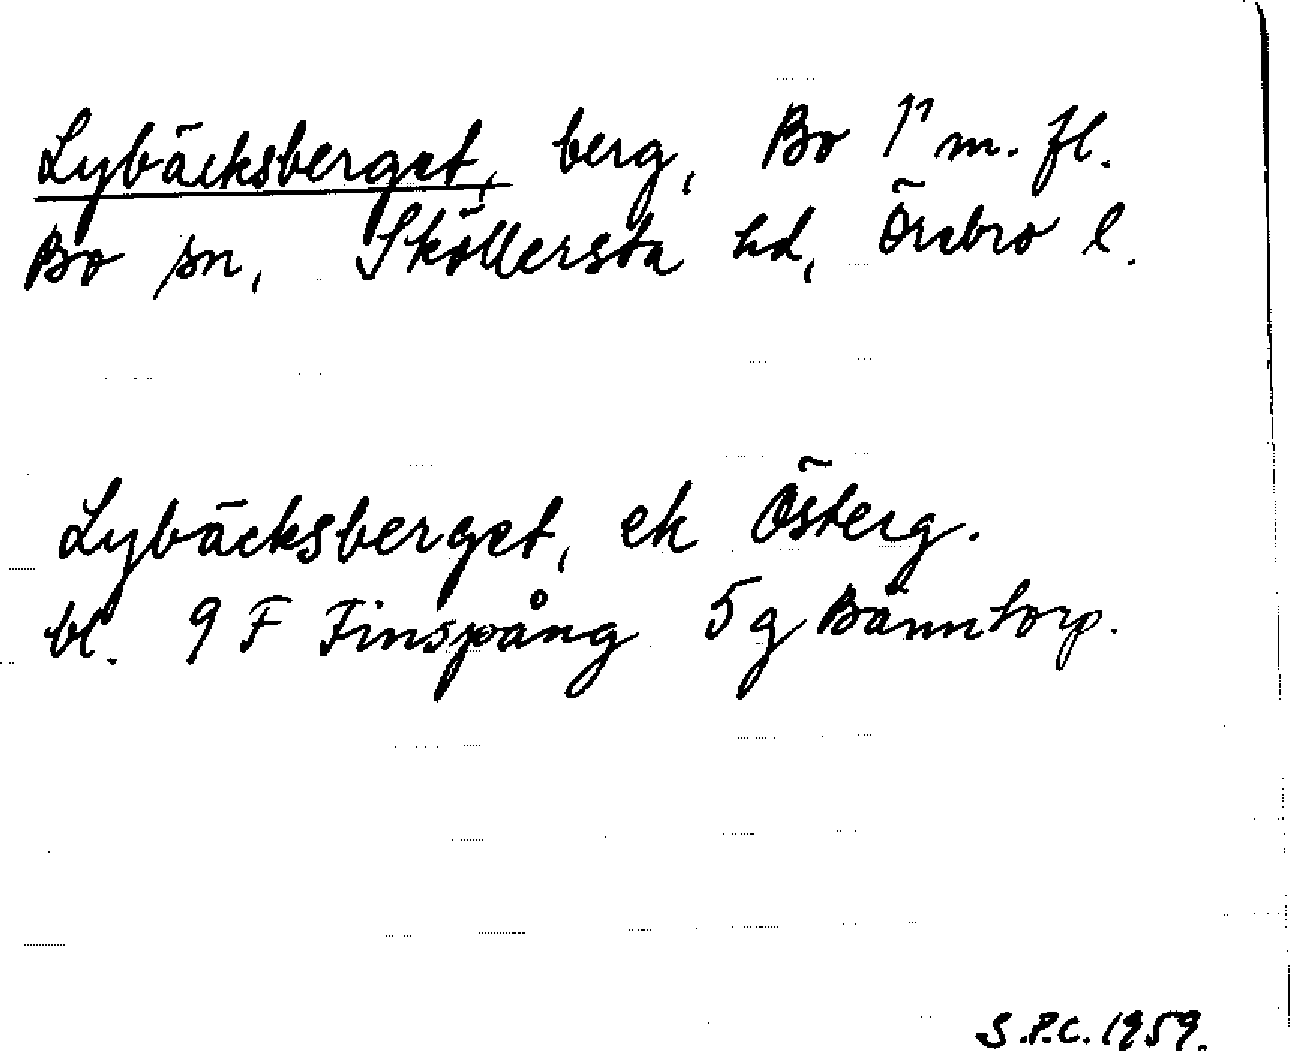 Lybäcksberget, berg, Bo 1¹¹ m. fl.
Bo sn, Sköllersta hd, Örebro l.
Lybäcksberget, ek Österg.
bl. 9 F Finspång 5 g Bänntorp.
S.P.C. 1959.